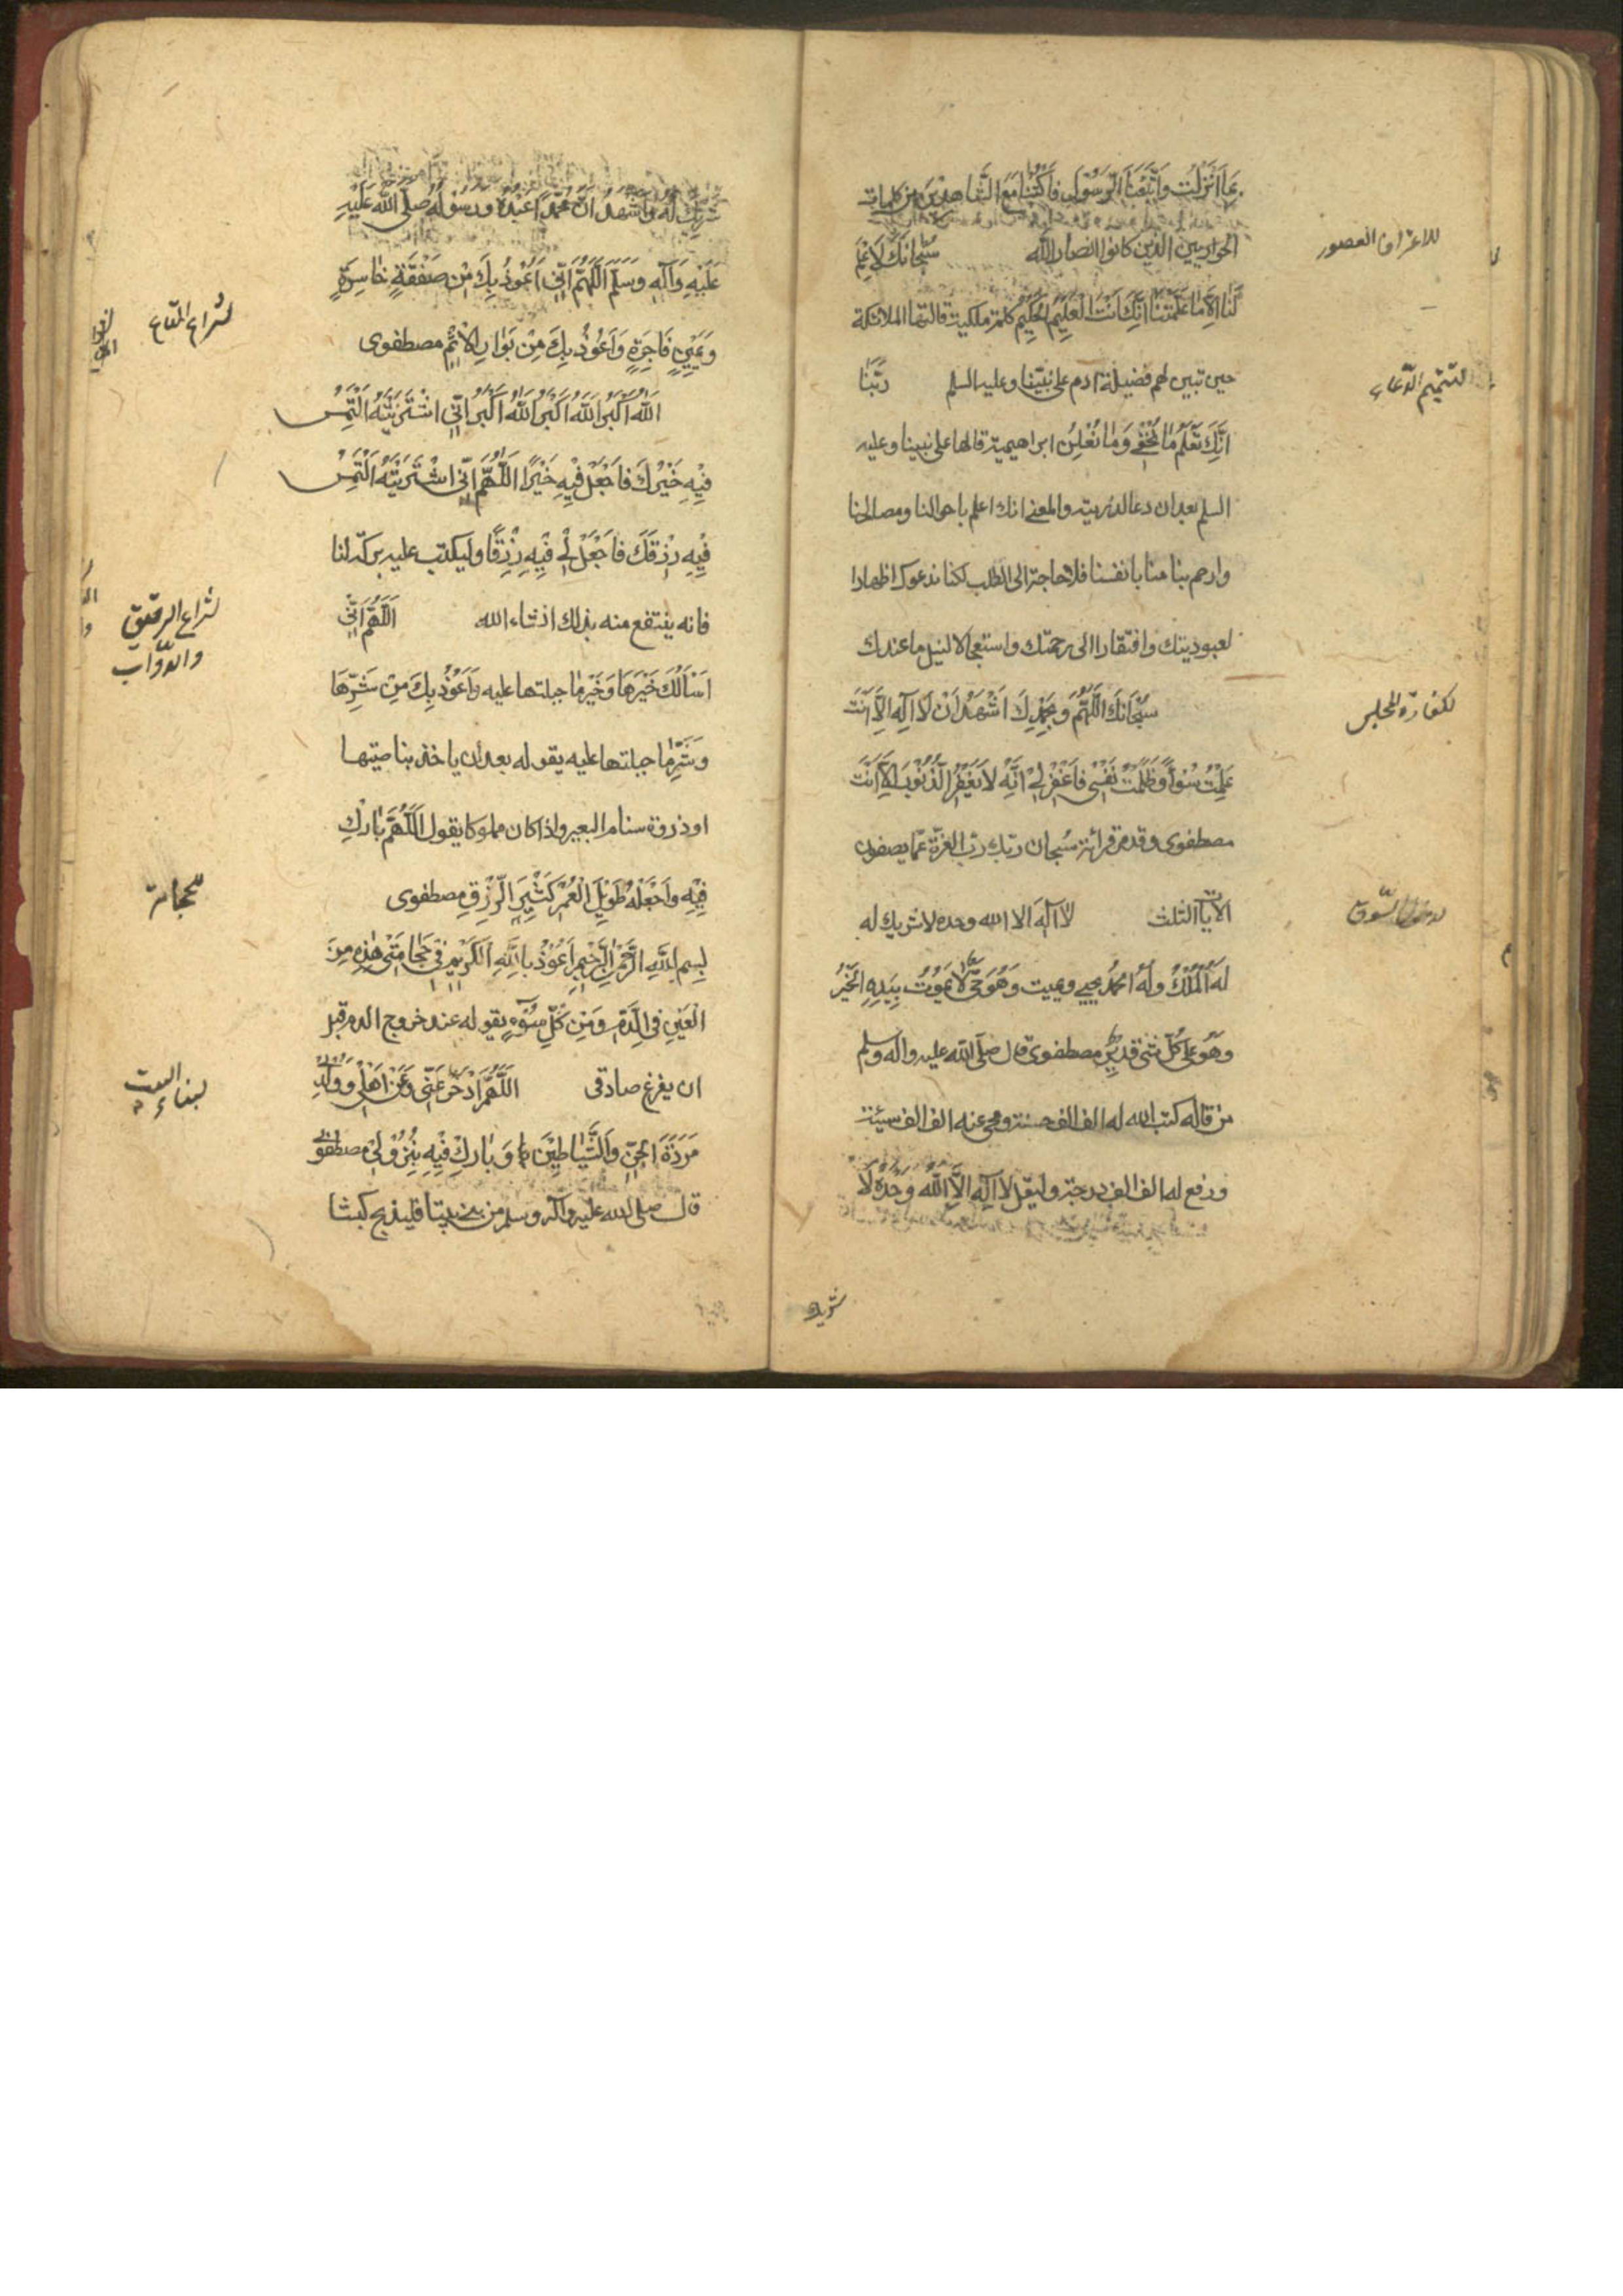 بما انزلت واتبعنا الرسول فاكتبنا مع الشاهدين من كلمات
الحواريين الذين كانوا انصار الله سبحانك لا علم
للاعتراف القصور
لنا الا ما علمتنا انك انت العليم الحكيم كلمة ملكية قالتها الملائكة
حين تبين لهم فضيلة ادم على نبينا وعليه السلم ربنا
لتتميم الدعاء
انك تعلم ما نخفي وما نعلن ابراهيمية قالها على نبينا وعليه
السلم بعد ان دعا لذريته والمعنى انك اعلم باحوالنا ومصالحنا
وارحم بنا منا بانفسنا فلا حاجة الى الطلب لكنا ندعوك اظهارا
لعبوديتك وافتقارا الى رحمتك واستعجالا لنيل ما عندك
سُبحانك اللهم وبحمدك اشهد ان لا اله الا انت
لكفارة المجلس
عملت سوءا وظلمت نفسي فاغفر لي انه لا يغفر الذنوب الا انت
مصطفوى وقد مر قرائة سبحان ربك رب العزة عما يصفون
الايات الثلث لا اله الا الله وحده لا شريك له
لدخول السوق
له الملك وله الحمد يحيي ويميت وهو حي لا يموت بيده الخير
وهو على كل شئ قدير مصطفوى قال صلى الله عليه واله وسلم
من قاله كتب الله له الف الف حسنة ومحى عنه الف الف سيئة
ورفع له الف الف درجة وليقل لا اله الا الله وحده لا
شريك
شريك له واشهد ان محمدا عبده ورسوله صلى الله عليه
عليه واله وسلم اللهم اني اعوذ بك من صفقة خاسرة
ويمين فاجرة واعوذ بك من بوار الاثم مصطفوى
لشراء المتاع
الله اكبر الله اكبر الله اكبر اني اشتريته التمس
فيه خيرك فاجعل فيه خيرا اللهم اني اشتريته التمس
فيه رزقك فاجعل لي فيه رزقا وليكتب عليه بركة لنا
فانه ينتفع منه بذلك انشاء الله اللهم اني
لشراء الرقيق
والدواب
اسالك خيرها وخير ما جبلتها عليه واعوذ بك من شرها
وشر ما جبلتها عليه يقوله بعد ان ياخذ بناصيتها
او ذروة سنام البعير واذا كان مملوكا يقول اللهم بارك
فيه واجعله طويل العمر كثير الرزق مصطفوى
للحجامة
بسم الله الرحمن الرحيم اعوذ بالله الكريم في حجامتي هذه من
العين في الدم ومن كل سوء يقوله عند خروج الدم قبل
ان يفرغ صادقى اللهم ادحر عني وعن اهلي وولدي
لبناء البيت
مردة الجن والشياطين وبارك فيه بنزولي مصطفوى
قال صلى الله عليه واله وسلم من بنى بيتا فليذبح كبشا